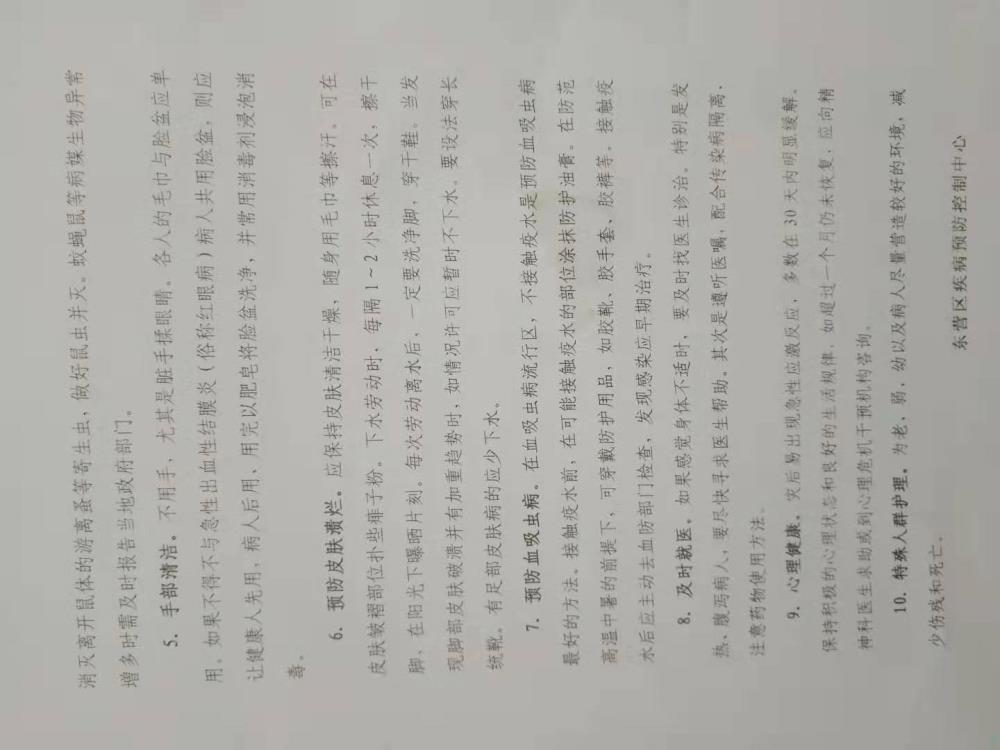 消灭离开鼠体的游离蚤等寄生虫，做好鼠虫并灭。蚊蝇鼠等病媒生物异常
增多时需及时报告当地政府部门。
5. 手部清洁。不用手，尤其是脏手揉眼睛。各人的毛巾与脸盆应单
用。如果不得不与急性出血性结膜炎（俗称红眼病）病人共用脸盆，则应
让健康人先用，病人后用，用完以肥皂将脸盆洗净，并常用消毒剂浸泡消
毒。
6. 预防皮肤溃烂。应保持皮肤清洁干燥，随身用毛巾等擦汗。可在
皮肤皱褶部位扑些痱子粉。下水劳动时，每隔1~2小时休息一次，擦干
脚、在阳光下曝晒片刻。每次劳动离水后，一定要洗净脚，穿干鞋。当发
现脚部皮肤破溃并有加重趋势时，如情况许可应暂时不下水。要设法穿长
统靴。有足部皮肤病的应少下水。
7. 预防血吸虫病。在血吸虫病流行区，不接触疫水是预防血吸虫病
最好的方法。接触疫水前，在可能接触疫水的部位涂抹防护油膏。在防范
高温中暑的前提下，可穿戴防护用品，如胶靴、胶手套、胶裤等。接触疫
水后应主动去血防部门检查，发现感染应早期治疗。
8. 及时就医。如果感觉身体不适时，要及时找医生诊治。特别是发
热、腹泻病人，要尽快寻求医生帮助。其次是遵听医嘱，配合传染病隔离，
注意药物使用方法。
9. 心理健康。灾后易出现急性应激反应，多数在 30 天内明显缓解。
保持积极的心理状态和良好的生活规律，如超过一个月仍未恢复，应向精
神科医生求助或到心理危机干预机构咨询。
10. 特殊人群护理。为老、弱、幼以及病人尽量营造较好的环境，减
少伤残和死亡。
东营区疾病预防控制中心